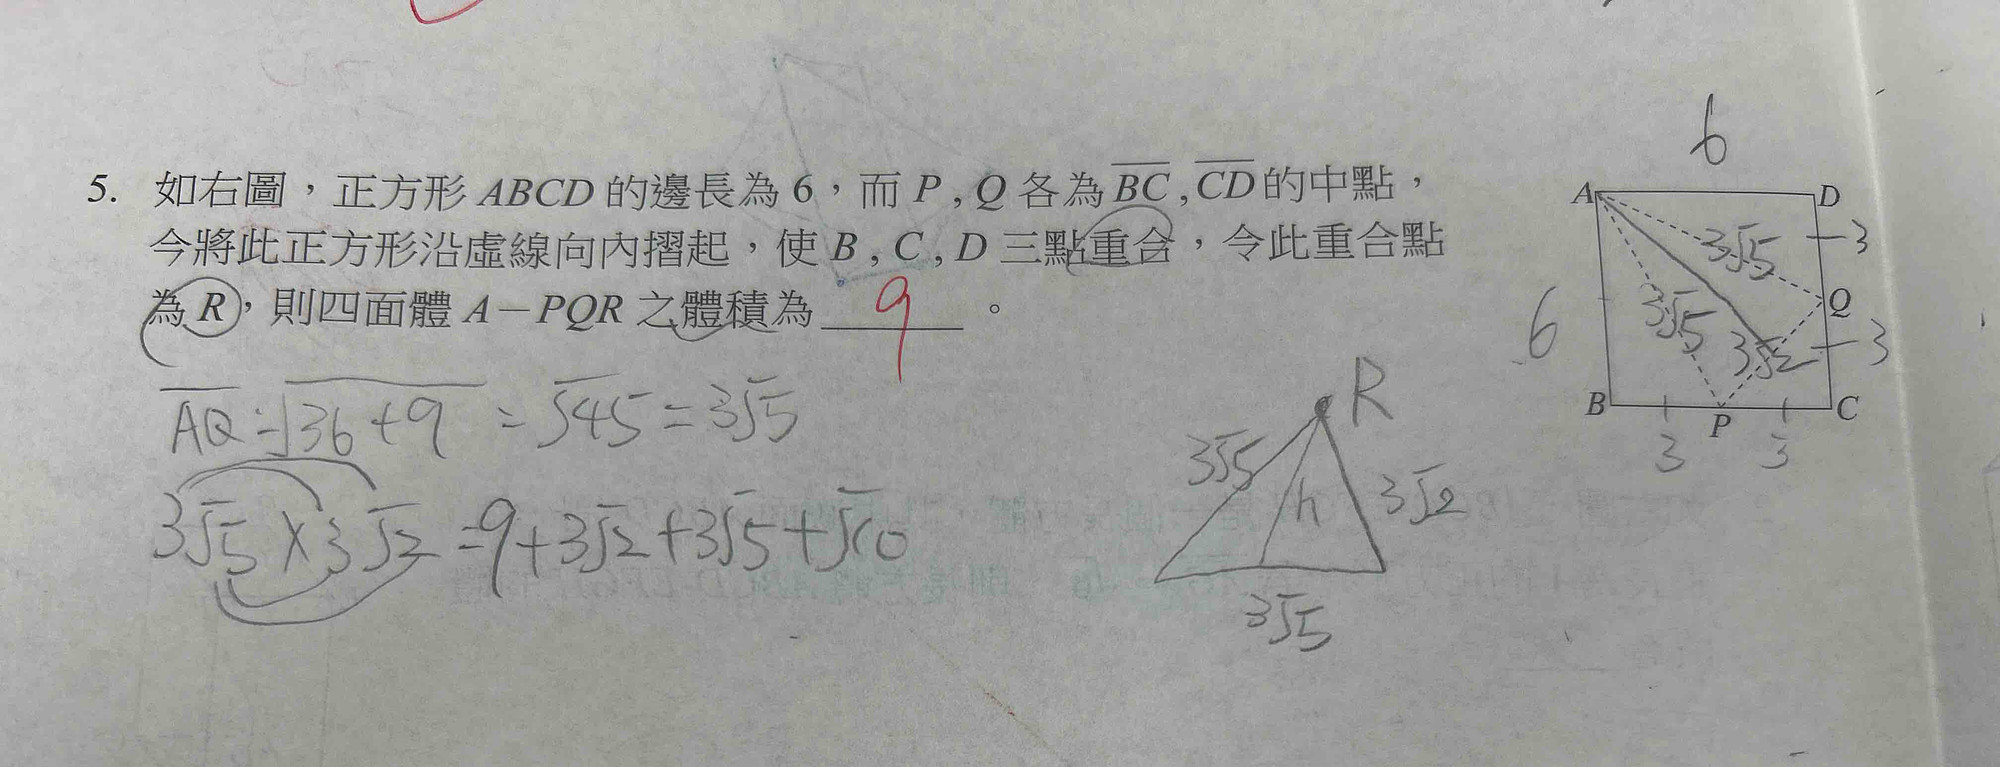 6
5. 如右圖，正方形 ABCD 的邊長為 6，而 P , Q 各為 BC , CD 的中點，
今將此正方形沿虛線向內摺起，使 B , C , D 三點重合，令此重合點
為 R，則四面體 A－PQR 之體積為 9 。
A D
3√5 3
Q
6 3√5 3√2 3
B P C
3 3
AQ = √36+9 = √45 = 3√5
R
3√5 h 3√2
3√5
3√5 × 3√2 = 9+3√2+3√5+√10